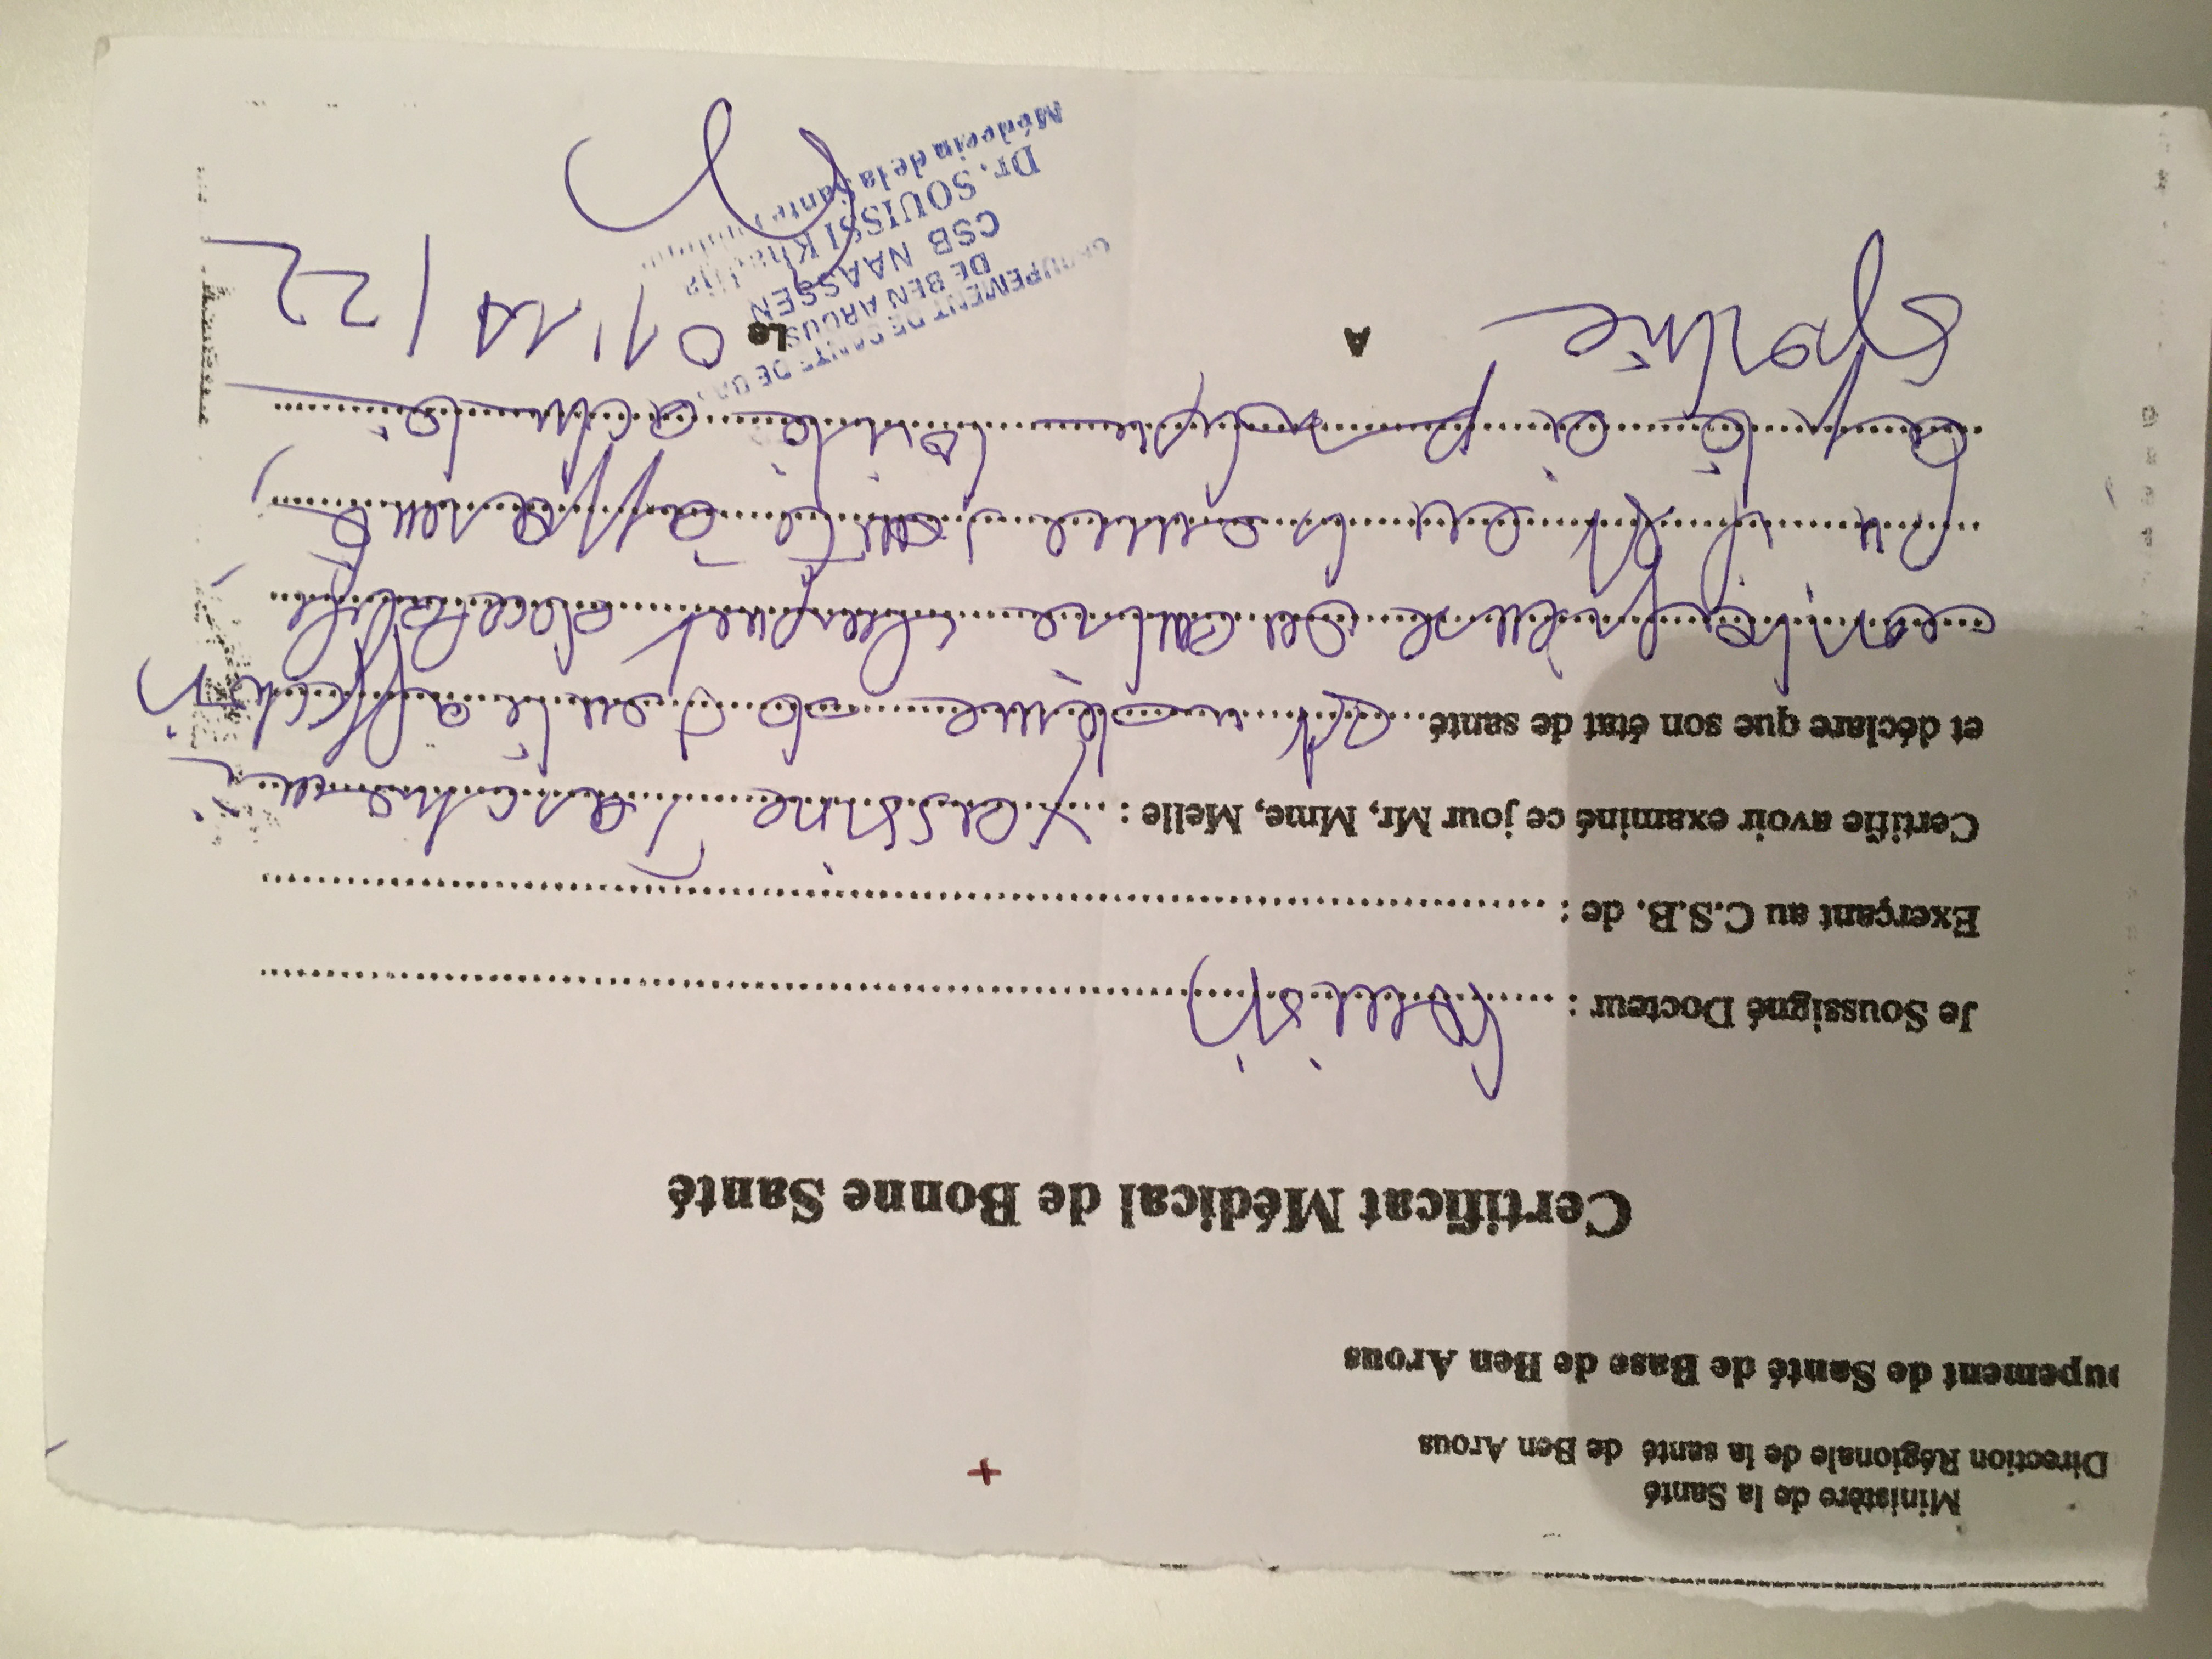 Ministère de la Santé
Direction Régionale de la santé de Ben Arous
upement de Santé de Base de Ben Arous
Certificat Médical de Bonne Santé
Je Soussigné Docteur : Souissi
Exerçant au C.S.B. de :
Certifie avoir examiné ce jour Mr, Mme, Melle : Yassine
et déclare que son état de santé est affection
contagieuse ou cliniquement
en bonne santé apparente
apte à pratiquer toute activité
sportive A Le 01/11/22
GROUPEMENT DE SANTE DE
DE BEN AROUS
CSB NAASSEN
Dr. SOUISSI
Médecin de la Santé